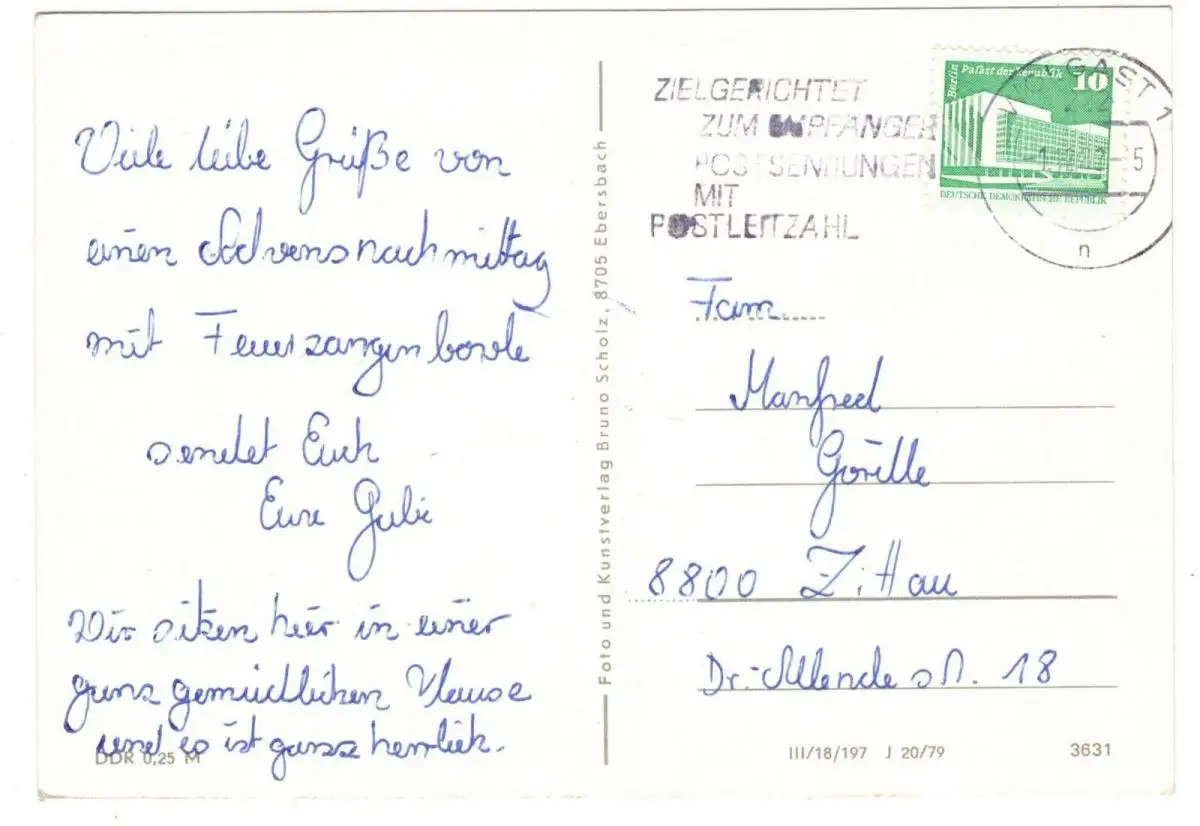 Viele liebe Grüße von
einen Advensnachmittag
mit Feuerzangenbowle
sendet Euch
Eure Gabi
Wir sitzen hier in einer
ganz gemüdlichen Klause
und es ist ganz herrlich.
DDR 0,25 M
Foto und Kunstverlag Bruno Scholz, 8705 Ebersbach
ZIELGERICHTET
ZUM EMPFÄNGER
POSTSENDUNGEN
MIT
POSTLEITZAHL
Berlin Palast der Republik 10
DEUTSCHE DEMOKRATISCHE REPUBLIK
WOLGAST 1
n
Fam.
Manfred
Görlle
8800 Zittau
Dr.-Allende str. 18
III/18/197 J 20/79
3631